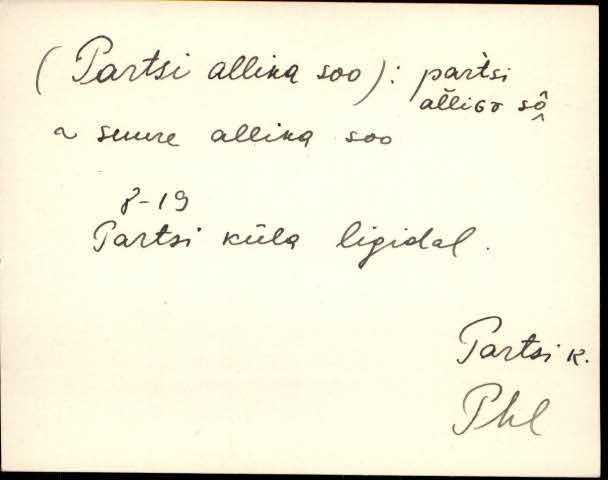 (Partsi allika soo): partsi
alliGɒ sô
~ suure allika soo
8-19
Partsi küla ligidal.
Partsi k.
Phl